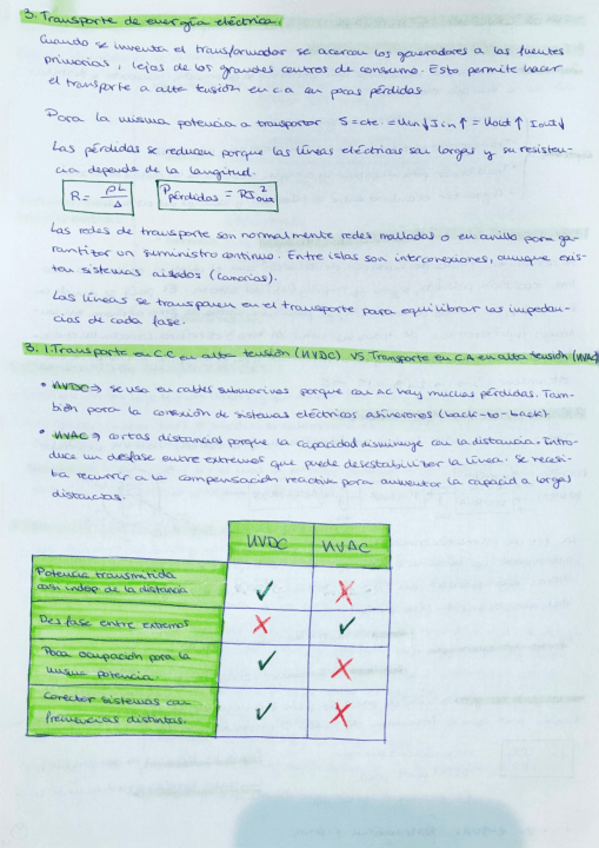 3. Transporte de energía eléctrica:
Cuando se inventa el transformador se acercan los generadores a las fuentes
primarias, lejos de los grandes centros de consumo. Esto permite hacer
el transporte a alta tensión en c.a con pocas pérdidas.
Para la misma potencia a transportar S=cte. = Uin↓ Iin↑ = Uout↑ Iout↓
Las pérdidas se reducen porque las líneas eléctricas son largas y su resisten-
cia depende de la longitud.
R = ρL/A Ppérdidas = RI²out
Las redes de transporte son normalmente redes malladas o en anillo para ga-
rantizar un suministro continuo. Entre islas son interconexiones, aunque exis-
ten sistemas aislados (Canarias).
Las líneas se transponen en el transporte para equilibrar las impedan-
cias de cada fase.
3.1. Transporte en CC en alta tensión (HVDC) VS. Transporte en CA en alta tensión (HVAC)
• HVDC → se usa en cables submarinos porque con AC hay muchas pérdidas. Tam-
bién para la conexión de sistemas eléctricos asíncronos (back-to-back).
• HVAC → cortas distancias porque la capacidad disminuye con la distancia. Intro-
duce un desfase entre extremos que puede desestabilizar la línea. Se necesi-
ta recurrir a la compensación reactiva para aumentar la capacid a largas
distancias.
HVDC HVAC
Potencia transmitida
casi indep. de la distancia ✓ ✗
Desfase entre extremos ✗ ✓
Poca ocupación para la
misma potencia. ✓ ✗
Conectar sistemas con
frecuencias distintas. ✓ ✗